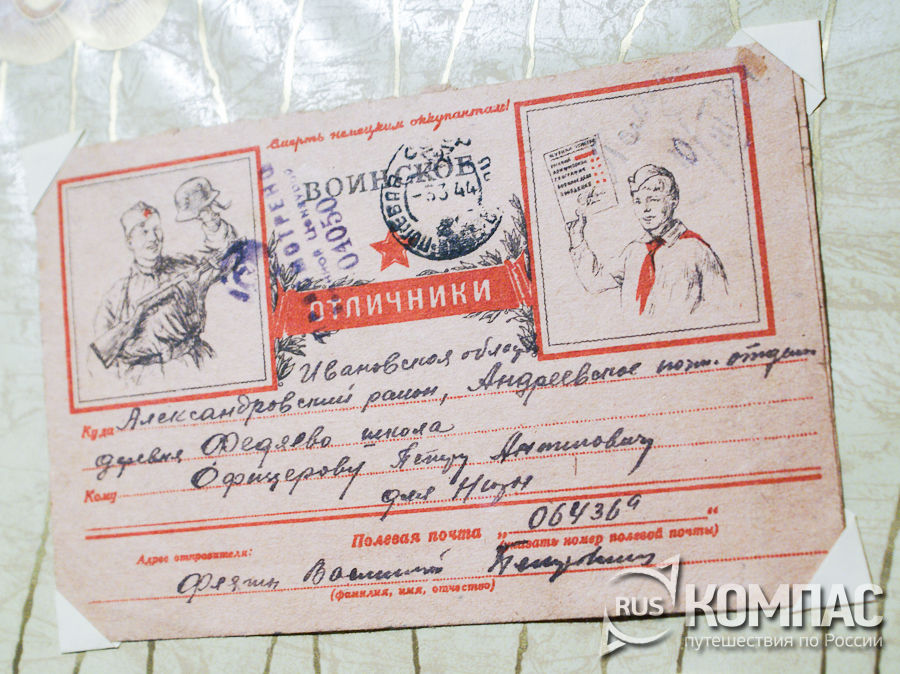 Смерть немецким оккупантам!
ВОИНСКОЕ
ПОЛЕВАЯ
-3344
04050
ОТЛИЧНИКИ
Ивановская област
Куда Александровский район, Андреевское почт. отделен
деревня Федяево школа
Кому Офицерову Петру Антиповичу
для Нюры
Полевая почта „064369“
(указать номер полевой почты)
Адрес отправителя:
Василий Петрович
(фамилия, имя, отчество)
RUS КОМПАС
путешествия по России